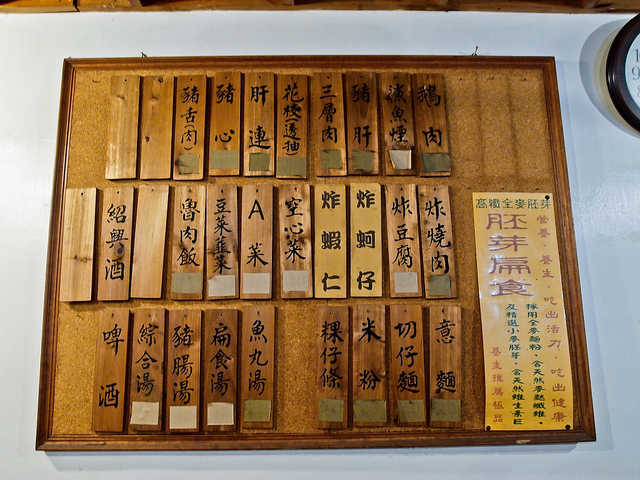 鵝肉
鯊魚煙
豬肝
三層肉
花枝(透抽)
肝連
豬心
豬舌(肉)
炸燒肉
炸豆腐
炸蚵仔
炸蝦仁
空心菜
A菜
豆菜韮菜
魯肉飯
紹興酒
意麵
切仔麵
米粉
粿仔條
魚丸湯
扁食湯
豬腸湯
綜合湯
啤酒
高纖全麥胚芽
胚芽扁食
營養、養生、吃出活力、吃出健康
採用全麥麵粉、含天然麥麩纖維、
及精選小麥胚芽、含天然維生素E
養生推薦極品